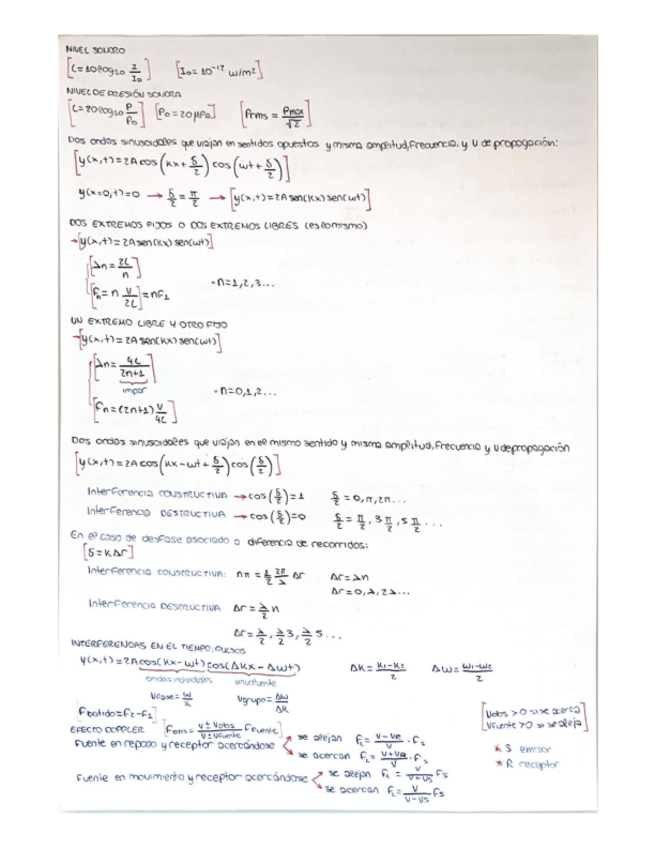 NIVEL SONORO
[L=10log₁₀ I/I₀] [I₀=10⁻¹² W/m²]
NIVEL DE PRESIÓN SONORA
[L=20log₁₀ P/P₀] [P₀=20μPa] [Prms = Pmax/√2]
Dos ondas sinusoidales que viajan en sentidos opuestos y misma amplitud, frecuencia, y v de propagación:
[y(x,t)=2A cos(kx+δ/2) cos(wt+δ/2)]
y(x=0,t)=0 → δ/2=π/2 → [y(x,t)=2A sen(kx) sen(wt)]
DOS EXTREMOS FIJOS O DOS EXTREMOS LIBRES (es lo mismo)
→[y(x,t)=2A sen(kx) sen(wt)]
[λn=2L/n]
[fn=n v/2L]=nf₁ • n=1,2,3...
UN EXTREMO LIBRE Y OTRO FIJO
→[y(x,t)=2A sen(kx) sen(wt)]
[λn=4L/2n+1]
impar • n=0,1,2...
[fn=(2n+1) v/4L]
Dos ondas sinusoidales que viajan en el mismo sentido y misma amplitud, frecuencia y v de propagación
[y(x,t)=2A cos(kx-wt+δ/2) cos(δ/2)]
Interferencia CONSTRUCTIVA → cos(δ/2)=1 δ/2=0,π,2π...
Interferencia DESTRUCTIVA → cos(δ/2)=0 δ/2=π/2, 3π/2, 5π/2...
En el caso de desfase asociado a diferencia de recorridos:
[δ=kΔr]
Interferencia CONSTRUCTIVA: nπ=1/2 2π/λ Δr Δr=λn
Δr=0,λ,2λ...
Interferencia DESTRUCTIVA Δr=λ/2 n
Δr=λ/2, λ/2 3, λ/2 5...
INTERFERENCIAS EN EL TIEMPO: PULSOS
y(x,t)=2A cos(kx-wt) cos(Δkx-Δwt) Δk=k₁-k₂/2 Δw=w₁-w₂/2
ondas individuales envolvente
Vfase=w/k Vgrupo=Δw/Δk
[fbatido=f₂-f₁] [Vobs>0 si se acerca
EFECTO DOPPLER [fobs=v±vobs/v±vfuente ffuente] Vfuente>0 si se aleja]
Fuente en reposo y receptor acercándose se alejan fL=v-vR/v · fs
se acercan fL=v+vR/v · fs
* S emisor
* R receptor
Fuente en movimiento y receptor acercándose se alejan fL=v/v+vs fs
se acercan fL=v/v-vs fs